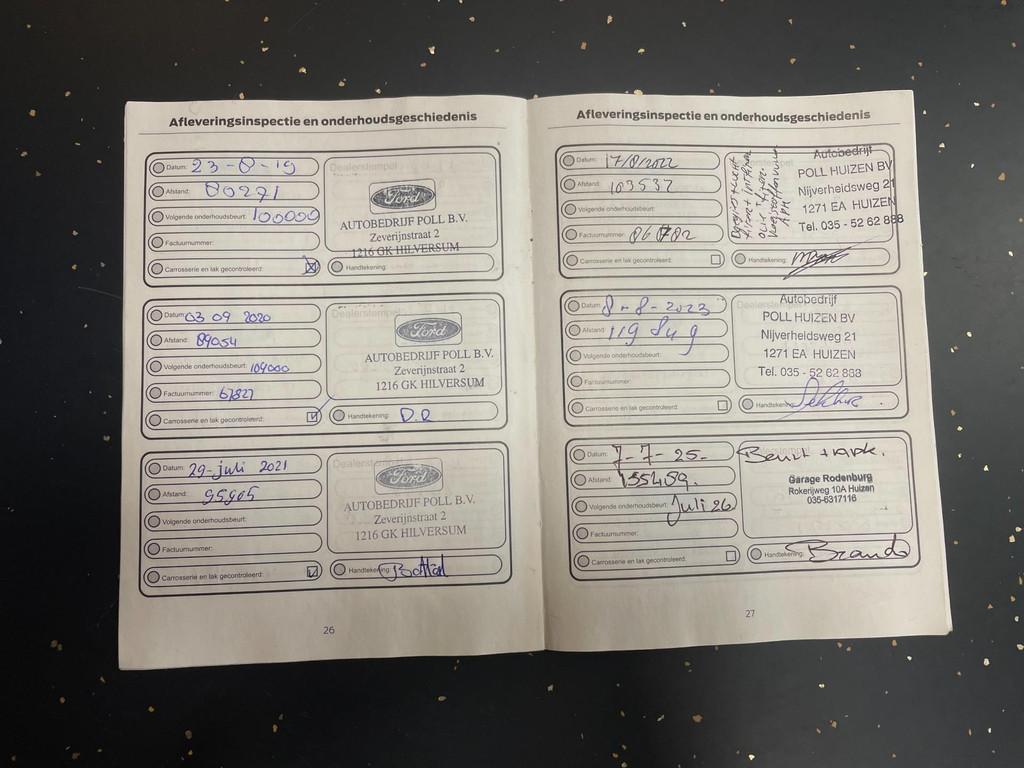 Afleveringsinspectie en onderhoudsgeschiedenis
Datum: 23-8-19
Afstand: 80271
Volgende onderhoudsbeurt: 100000
Factuurnummer:
Carrosserie en lak gecontroleerd:
Dealerstempel
Ford
AUTOBEDRIJF POLL B.V.
Zeverijnstraat 2
1216 GK HILVERSUM
Handtekening:
Datum: 03 09 2020
Afstand: 89054
Volgende onderhoudsbeurt: 109000
Factuurnummer: 67827
Carrosserie en lak gecontroleerd:
Dealerstempel
Ford
AUTOBEDRIJF POLL B.V.
Zeverijnstraat 2
1216 GK HILVERSUM
Handtekening: D.R
Datum: 29-juli 2021
Afstand: 95905
Volgende onderhoudsbeurt:
Factuurnummer:
Carrosserie en lak gecontroleerd:
Dealerstempel
Ford
AUTOBEDRIJF POLL B.V.
Zeverijnstraat 2
1216 GK HILVERSUM
Handtekening:
26
Afleveringsinspectie en onderhoudsgeschiedenis
Datum: 17/8/2022
Afstand: 103537
Volgende onderhoudsbeurt:
Factuurnummer: 86782
Carrosserie en lak gecontroleerd:
Autobedrijf
POLL HUIZEN BV
Nijverheidsweg 21
1271 EA HUIZEN
Tel. 035 - 52 62 888
Handtekening:
Datum: 8-8-2023
Afstand: 119849
Volgende onderhoudsbeurt:
Factuurnummer:
Carrosserie en lak gecontroleerd:
Dealerstempel
Autobedrijf
POLL HUIZEN BV
Nijverheidsweg 21
1271 EA HUIZEN
Tel. 035 - 52 62 888
Handtekening:
Datum: 7-7-25-
Afstand: 135409.
Volgende onderhoudsbeurt: Juli 26
Factuurnummer:
Carrosserie en lak gecontroleerd:
Garage Rodenburg
Rokerijweg 10A Huizen
035-6317116
Handtekening: Brando
27